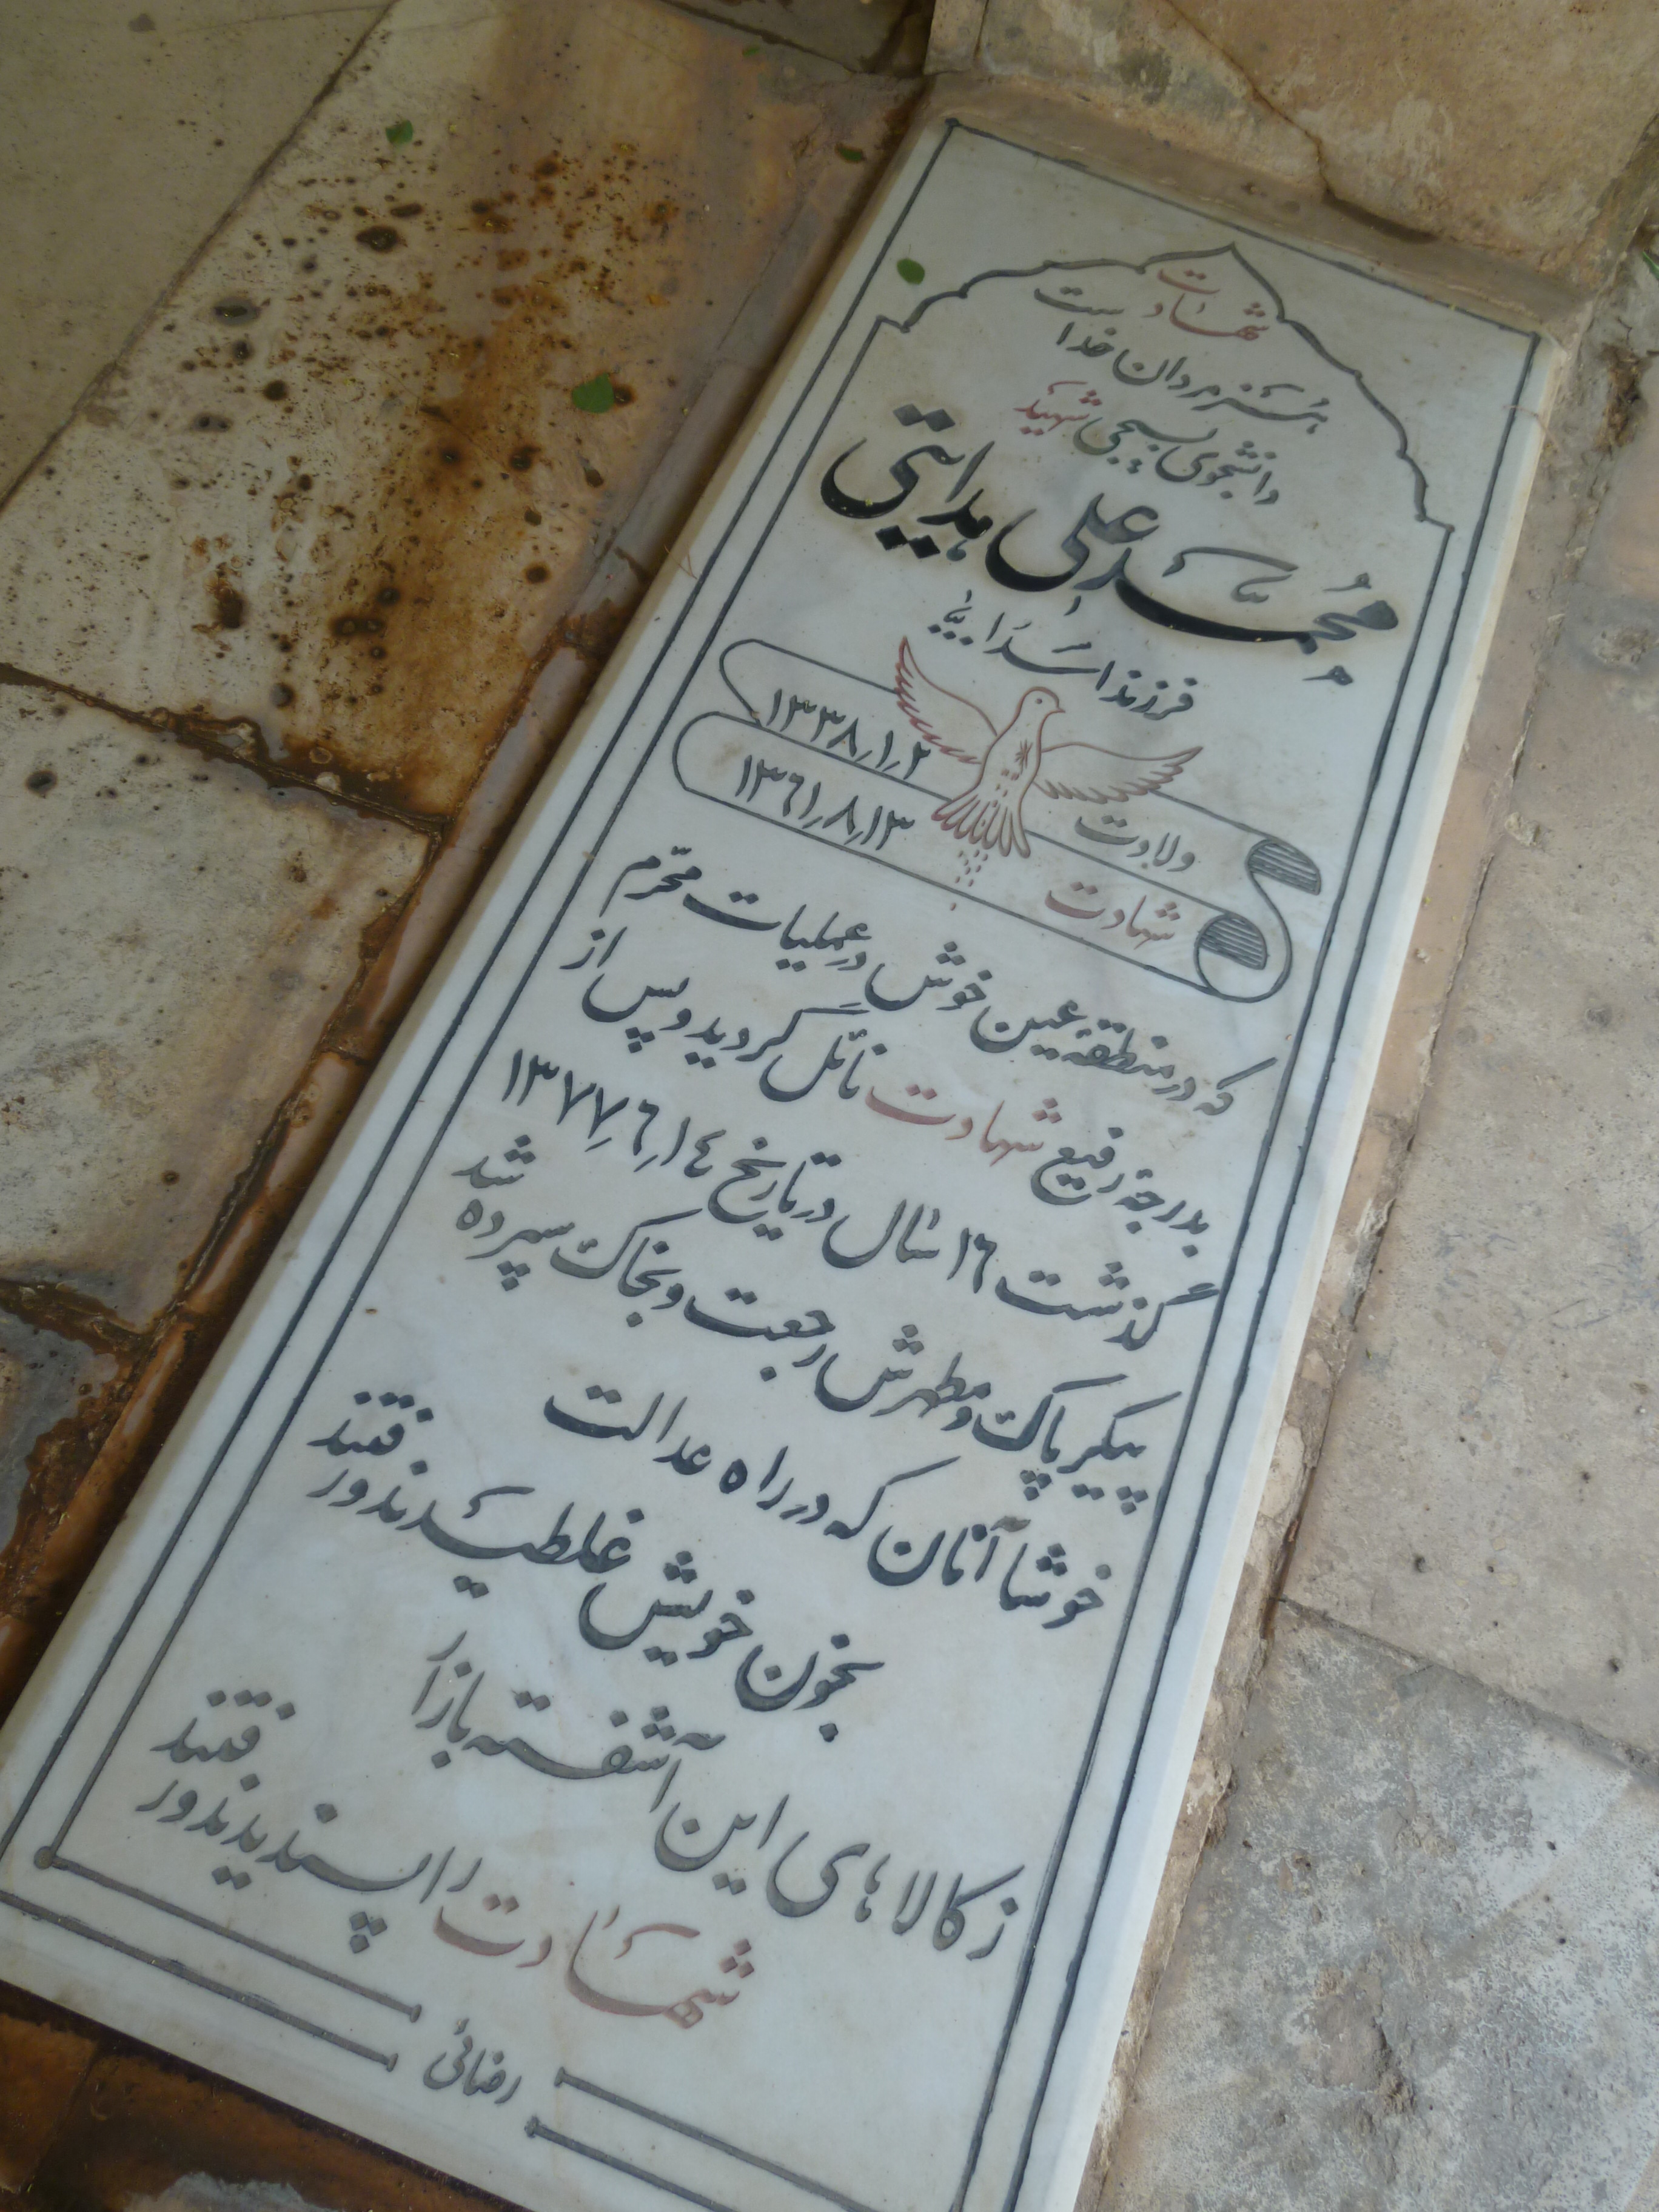 شهادت
هنر مردان خداست
دانشجوی بسیجی شهید
محمد علی هدایتی
فرزند اسداله
ولادت ١٣٣٨٫١٫٢
شهادت ١٣٦١٫٨٫١٣
که در منطقه عین خوش در عملیات محرّم
بدرجه رفیع شهادت نائل گردید و پس از
گذشت ١٦ سال در تاریخ ١٣٧٧٫٦٫١٤
پیکر پاک و مطهرش رجعت و بخاک سپرده شد
خوشا آنان که در راه عدالت
بخون خویش غلطیدند و رفتند
ز کالاهای این آشفته بازار
شهادت را پسندیدند و رفتند
رضائی